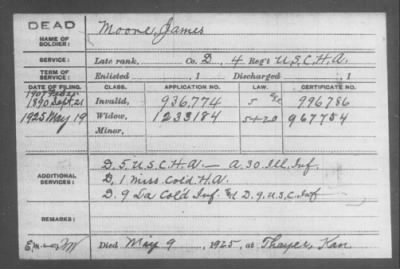 DEAD
NAME OF SOLDIER: Moore, James
SERVICE: Late rank, Co. D, 4 Reg't U.S.C.H.A.
TERM OF SERVICE: Enlisted , 1 Discharged , 1
DATE OF FILING. CLASS. APPLICATION NO. LAW. CERTIFICATE NO.
1890 Sept. 21 Invalid, 936,774 996786
1925 May 19 Widow, 1233184 967754
Minor,
ADDITIONAL SERVICES: D. 5. U.S.C.H.A. — A. 30 Ill. Inf.
D, 1 Miss. Cold H.A.
D. 9 La Cold Inf. D. 9. U.S.C. Inf
REMARKS:
Died May 9, 1925, at Thayer, Kan